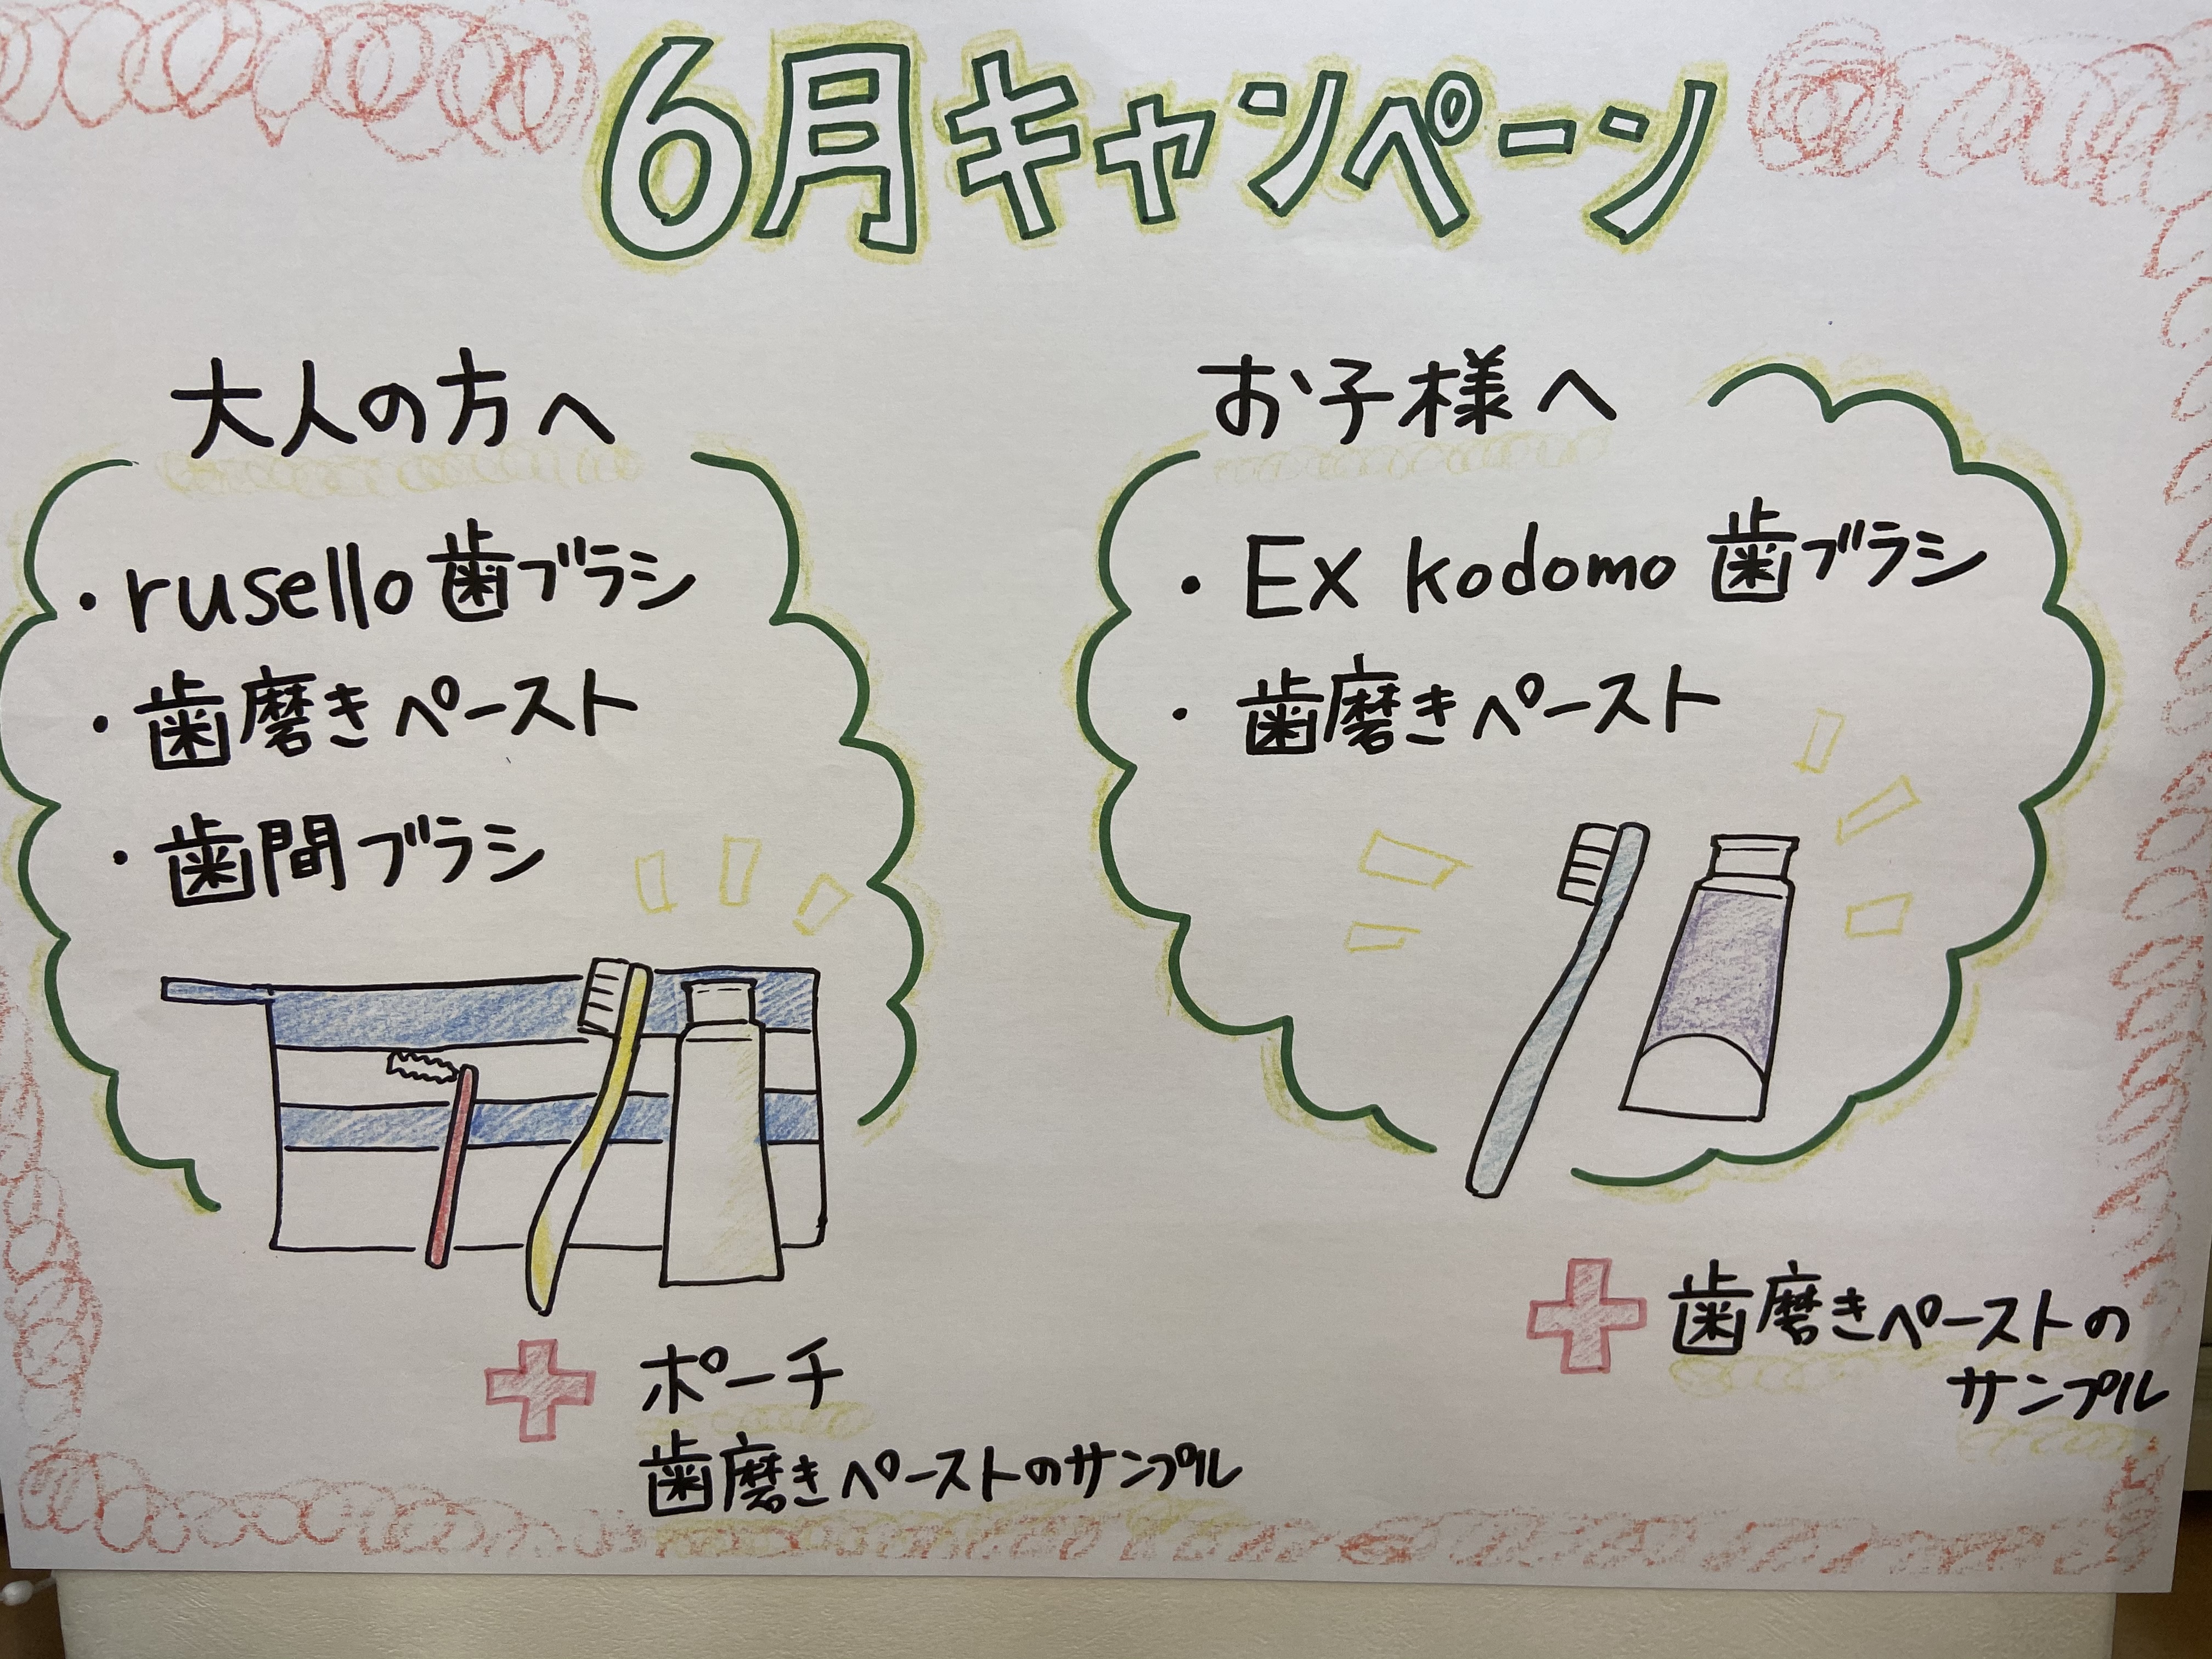 6月キャンペーン
大人の方へ
・rusello 歯ブラシ
・歯磨きペースト
・歯間ブラシ
ポーチ
歯磨きペーストのサンプル
お子様へ
・Ex kodomo 歯ブラシ
・歯磨きペースト
歯磨きペーストの
サンプル